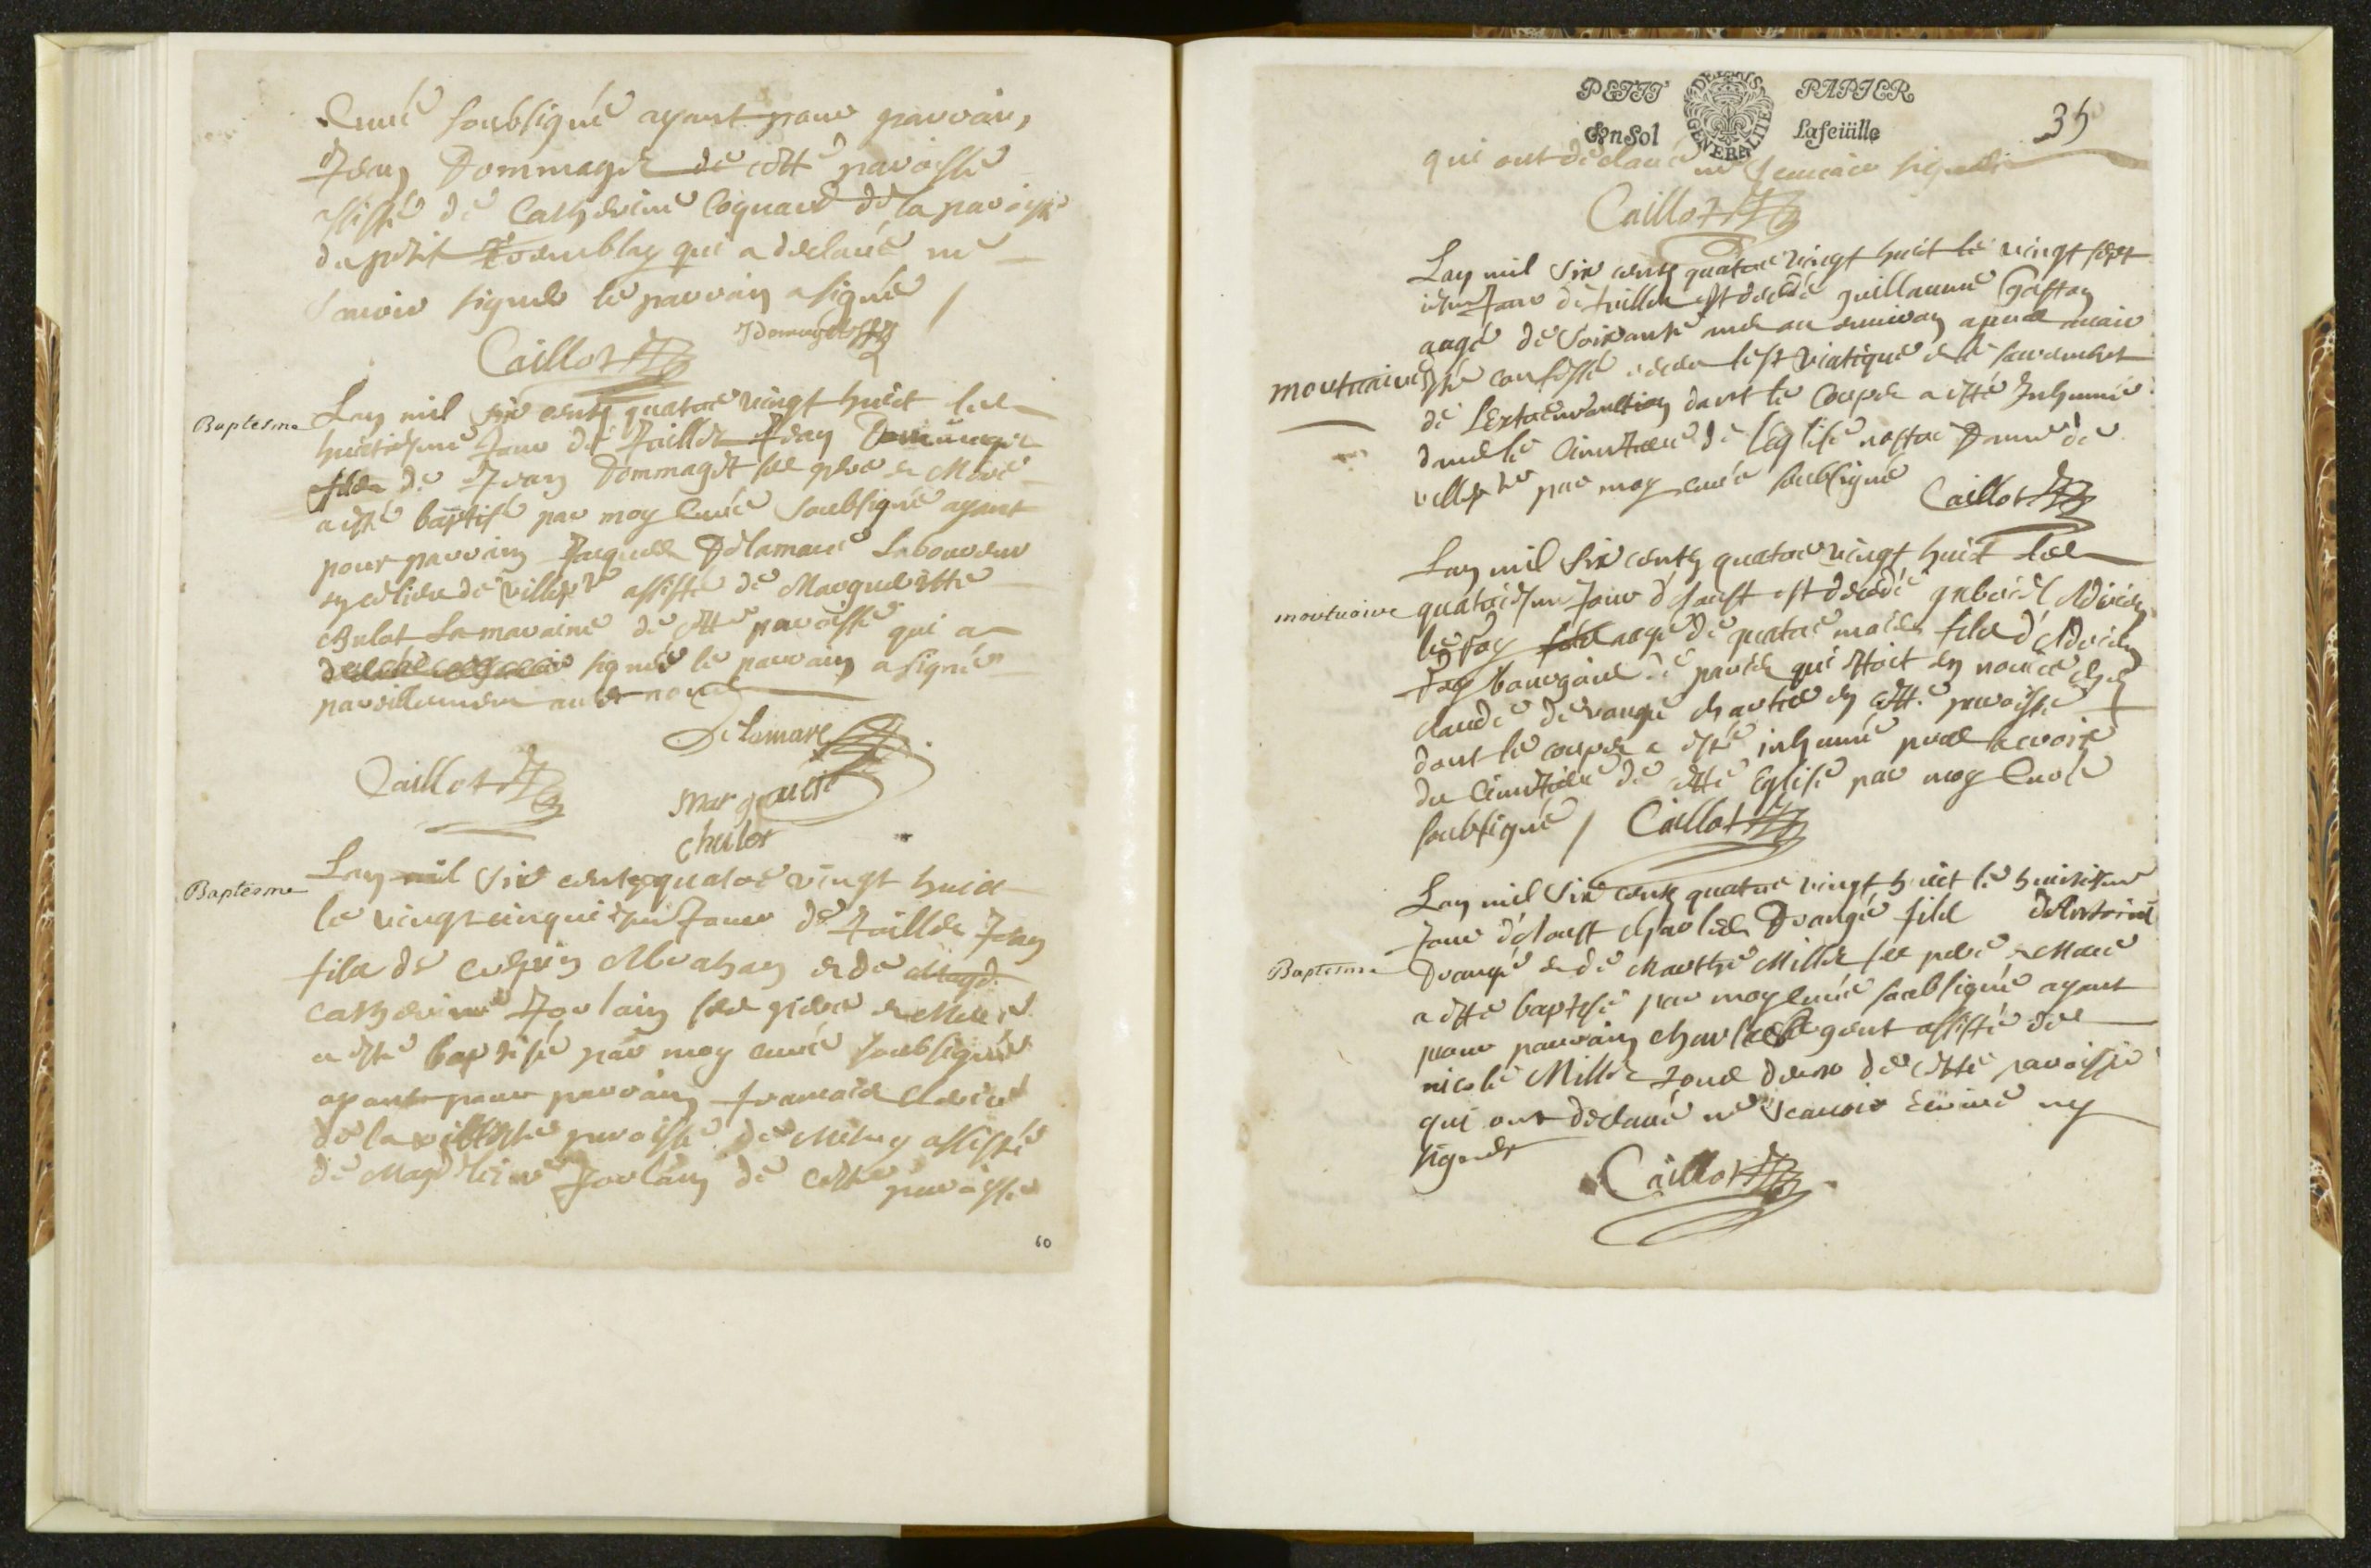 Curé soubsigné ayant pour parrain,
Jean Dommaget de cette paroisse
assisté de Catherine Coquard de la paroisse
du petit Tremblay qui a declaré ne
scavoir signer le parrain a signé /
Caillot
Baptesme
Lan mil six cents quatre vingt huict le
huictiesme Jour de Juillet Jean Dommaget
fils de Jean Dommaget ses pere et Mere
a esté baptisé par moy Curé soubsigné ayant
pour parrain Jacques Delamare Laboureur
assisté de Margueritte
Chulot la maraine de cette paroisse qui a
signer le parrain a signé
pareillement
Delamare
Caillot
Marguerite
chulot
Baptesme
Lan mil six cents quatre vingt huict
le vingt cinquiesme Jour de Juillet Jean
fils de Abraham et de
Catherine Joulain ses pere et Mere
a esté baptisé par moy curé soubsigné
ayant pour parrain francois
de la villette paroisse de Mitry assisté
de Magdeleine Joulain de cette paroisse
60
PETIT PAPIER
En Sol La feüille
GENERALITE
35
qui ont declaré ne scavoir signer
Caillot
Lan mil six cents quatre vingt huict le vingt sept
iesme Jour de Juillet est decedé guillaume Gaston
aagé de soixante ans ou environ apres avoir
mortuaire
esté confessé receu le st viatique et le sacrement
de Lextremonction dont le Corps a esté Inhumé
dans le Cimetiere de leglise nostre Dame de
par moy curé soubsigné Caillot
Lan mil six cents quatre vingt huict le
mortuaire
quatriesme Jour d'Aoust est decedé gabriel Adrien
aagé de quatre mois fils d'Adrien
bourgois de paris qui estoit en nourice chez
claude en cette paroisse
dont le corps a esté inhumé
du Cimetiere de cette Eglise par moy Curé
soubsigné / Caillot
Lan mil six cents quatre vingt huict le huictiesme
Jour d'Aoust Charles Drangé fils d'Antoine
Baptesme
Drangé et de Marthe Millet ses pere et Mere
a esté baptisé par moy curé soubsigné ayant
pour parrain Charles assisté de
nicole Millet tous deux de cette paroisse
qui ont declaré ne scavoir écrire ny
signer
Caillot